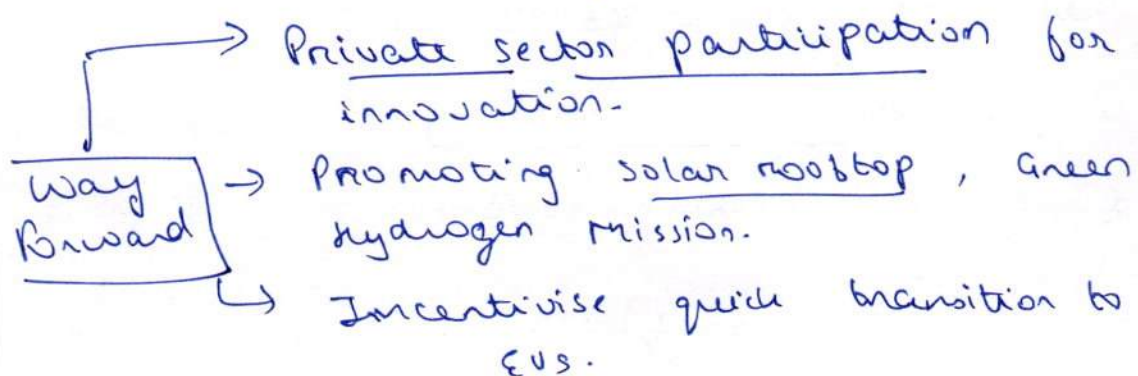 → Private sector participation for
innovation.
Way
Forward
→ Promoting solar rooftop, Green
Hydrogen Mission.
↳ Incentivise quick transition to
EVs.